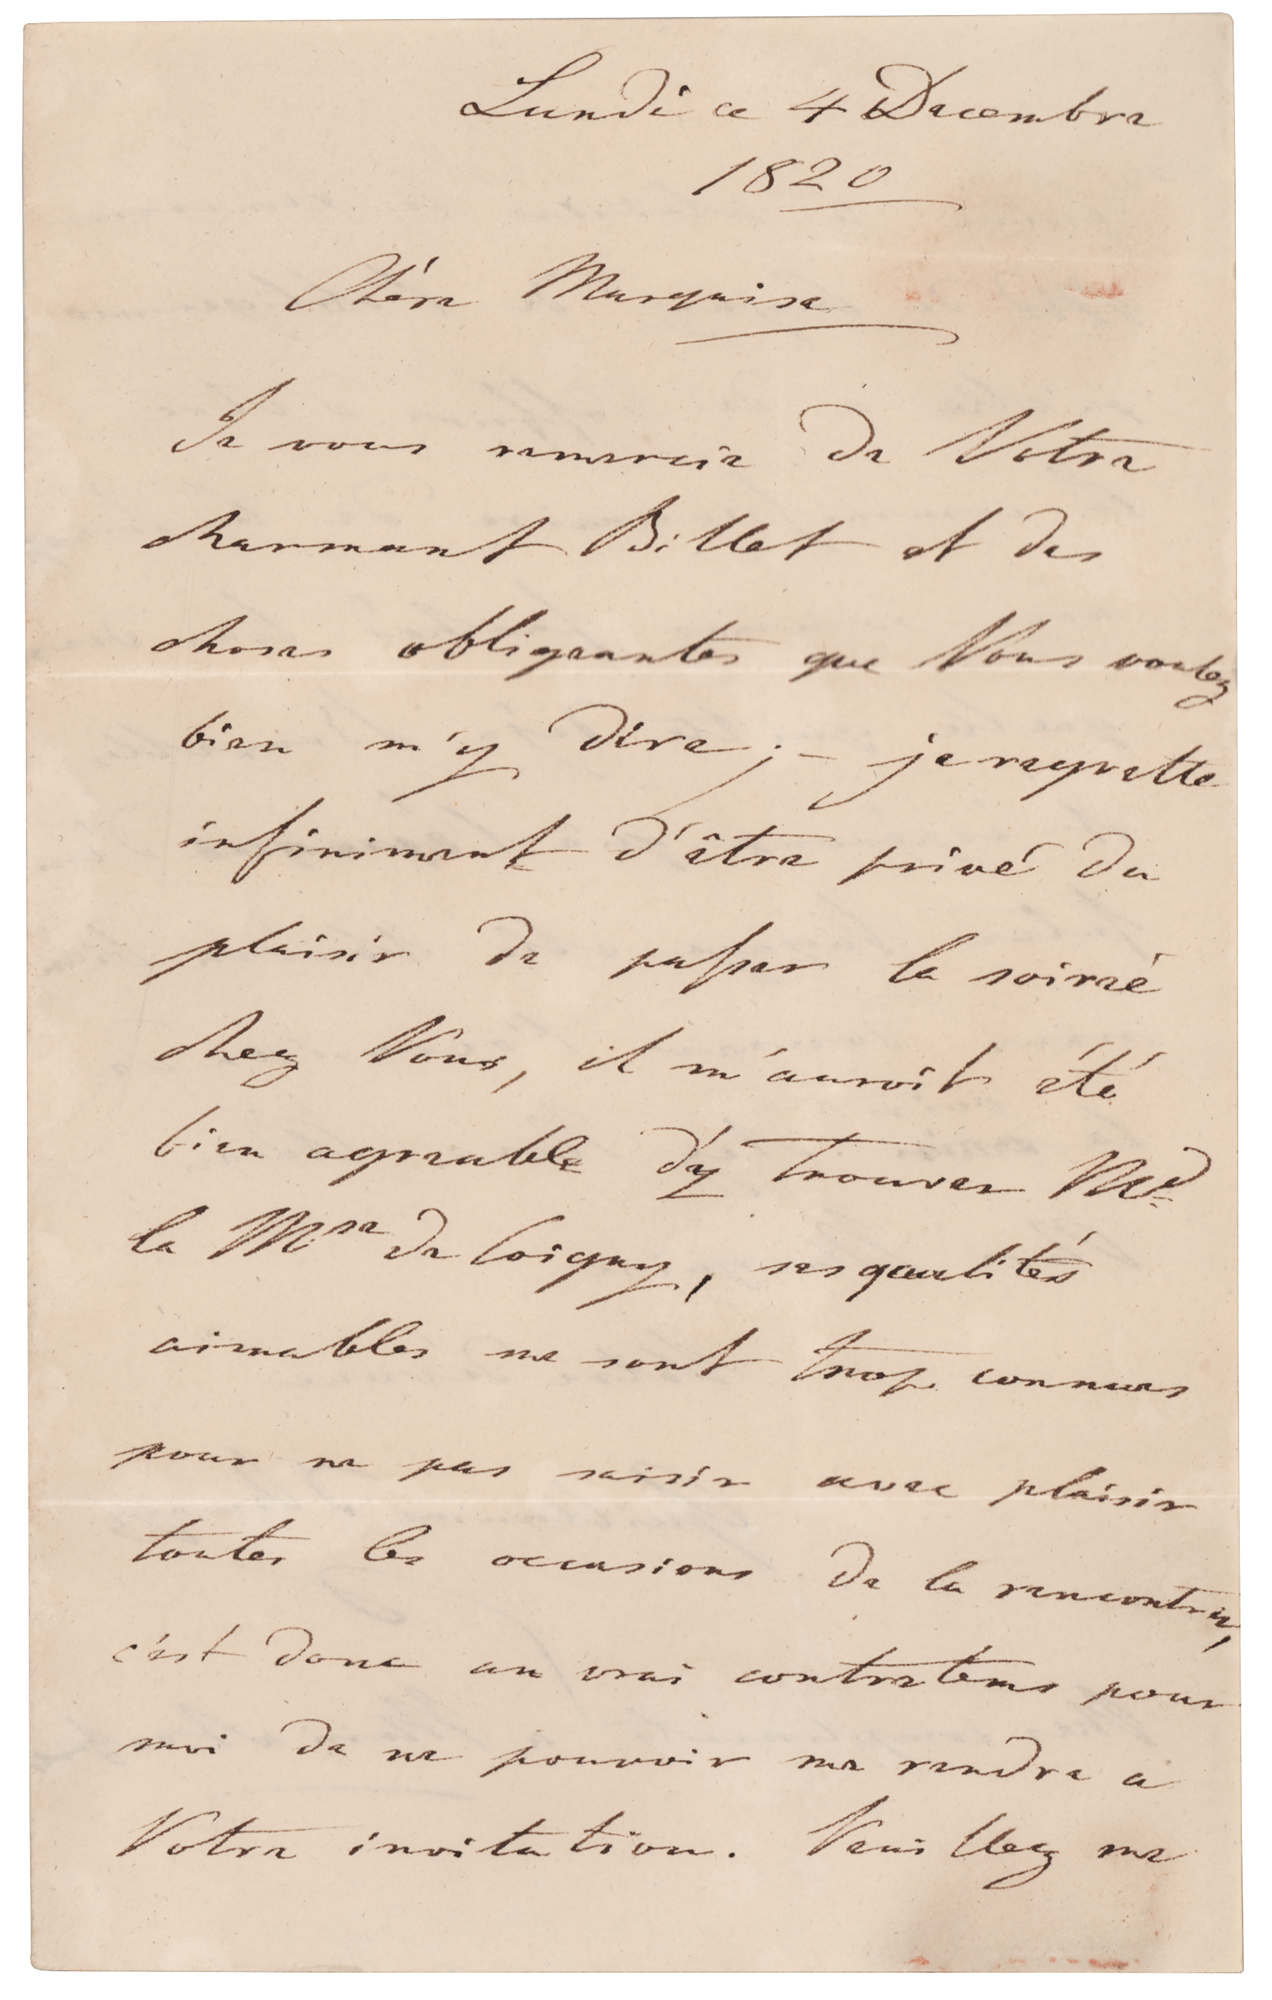 Lundi ce 4 Decembre
1820
Chére Marquise
Je vous remercie de Votre
charmant Billet et des
choses obligeantes que Vous voulez
bien m'y dire; – je regrette
infiniment d'être privé du
plaisir de passer la soireé
chez Vous, il m'auroit été
bien agreable d'y trouver Md
la Mse de Coigny, ses qualités
aimables me sont trop connues
pour ne pas saisir avec plaisir
toutes les occasions de la rencontrer,
c'est donc un vrai contretems pour
moi de ne pouvoir me rendre a
Votre invitation. Veuillez me